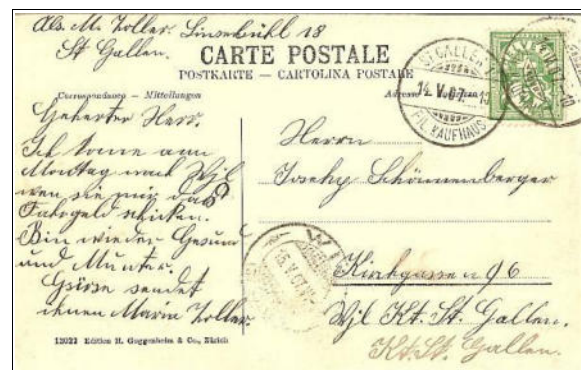 Abs. M. Zoller. Linsebühl 18
St Gallen.
CARTE POSTALE
POSTKARTE — CARTOLINA POSTALE
Correspondance — Mittellungen
Adresse
ST GALLEN
14. V. 07.
FIL. KAUFHAUS
HELVETIA
Geherter Herr.
Ich kome am
Montag nach Wyl
wen sie mir das
Fahrgeld schicken.
Bin wieder Gesund
und Munter.
Grüsse sendet
ihnen Marie Zoller.
Herrn
Joseph Schönenberger
WIL
15. V. 07
Kirchgasse n 96
Wyl Kt. St. Gallen.
Kt. St. Gallen.
12022 Edition H. Guggenheim & Co., Zürich